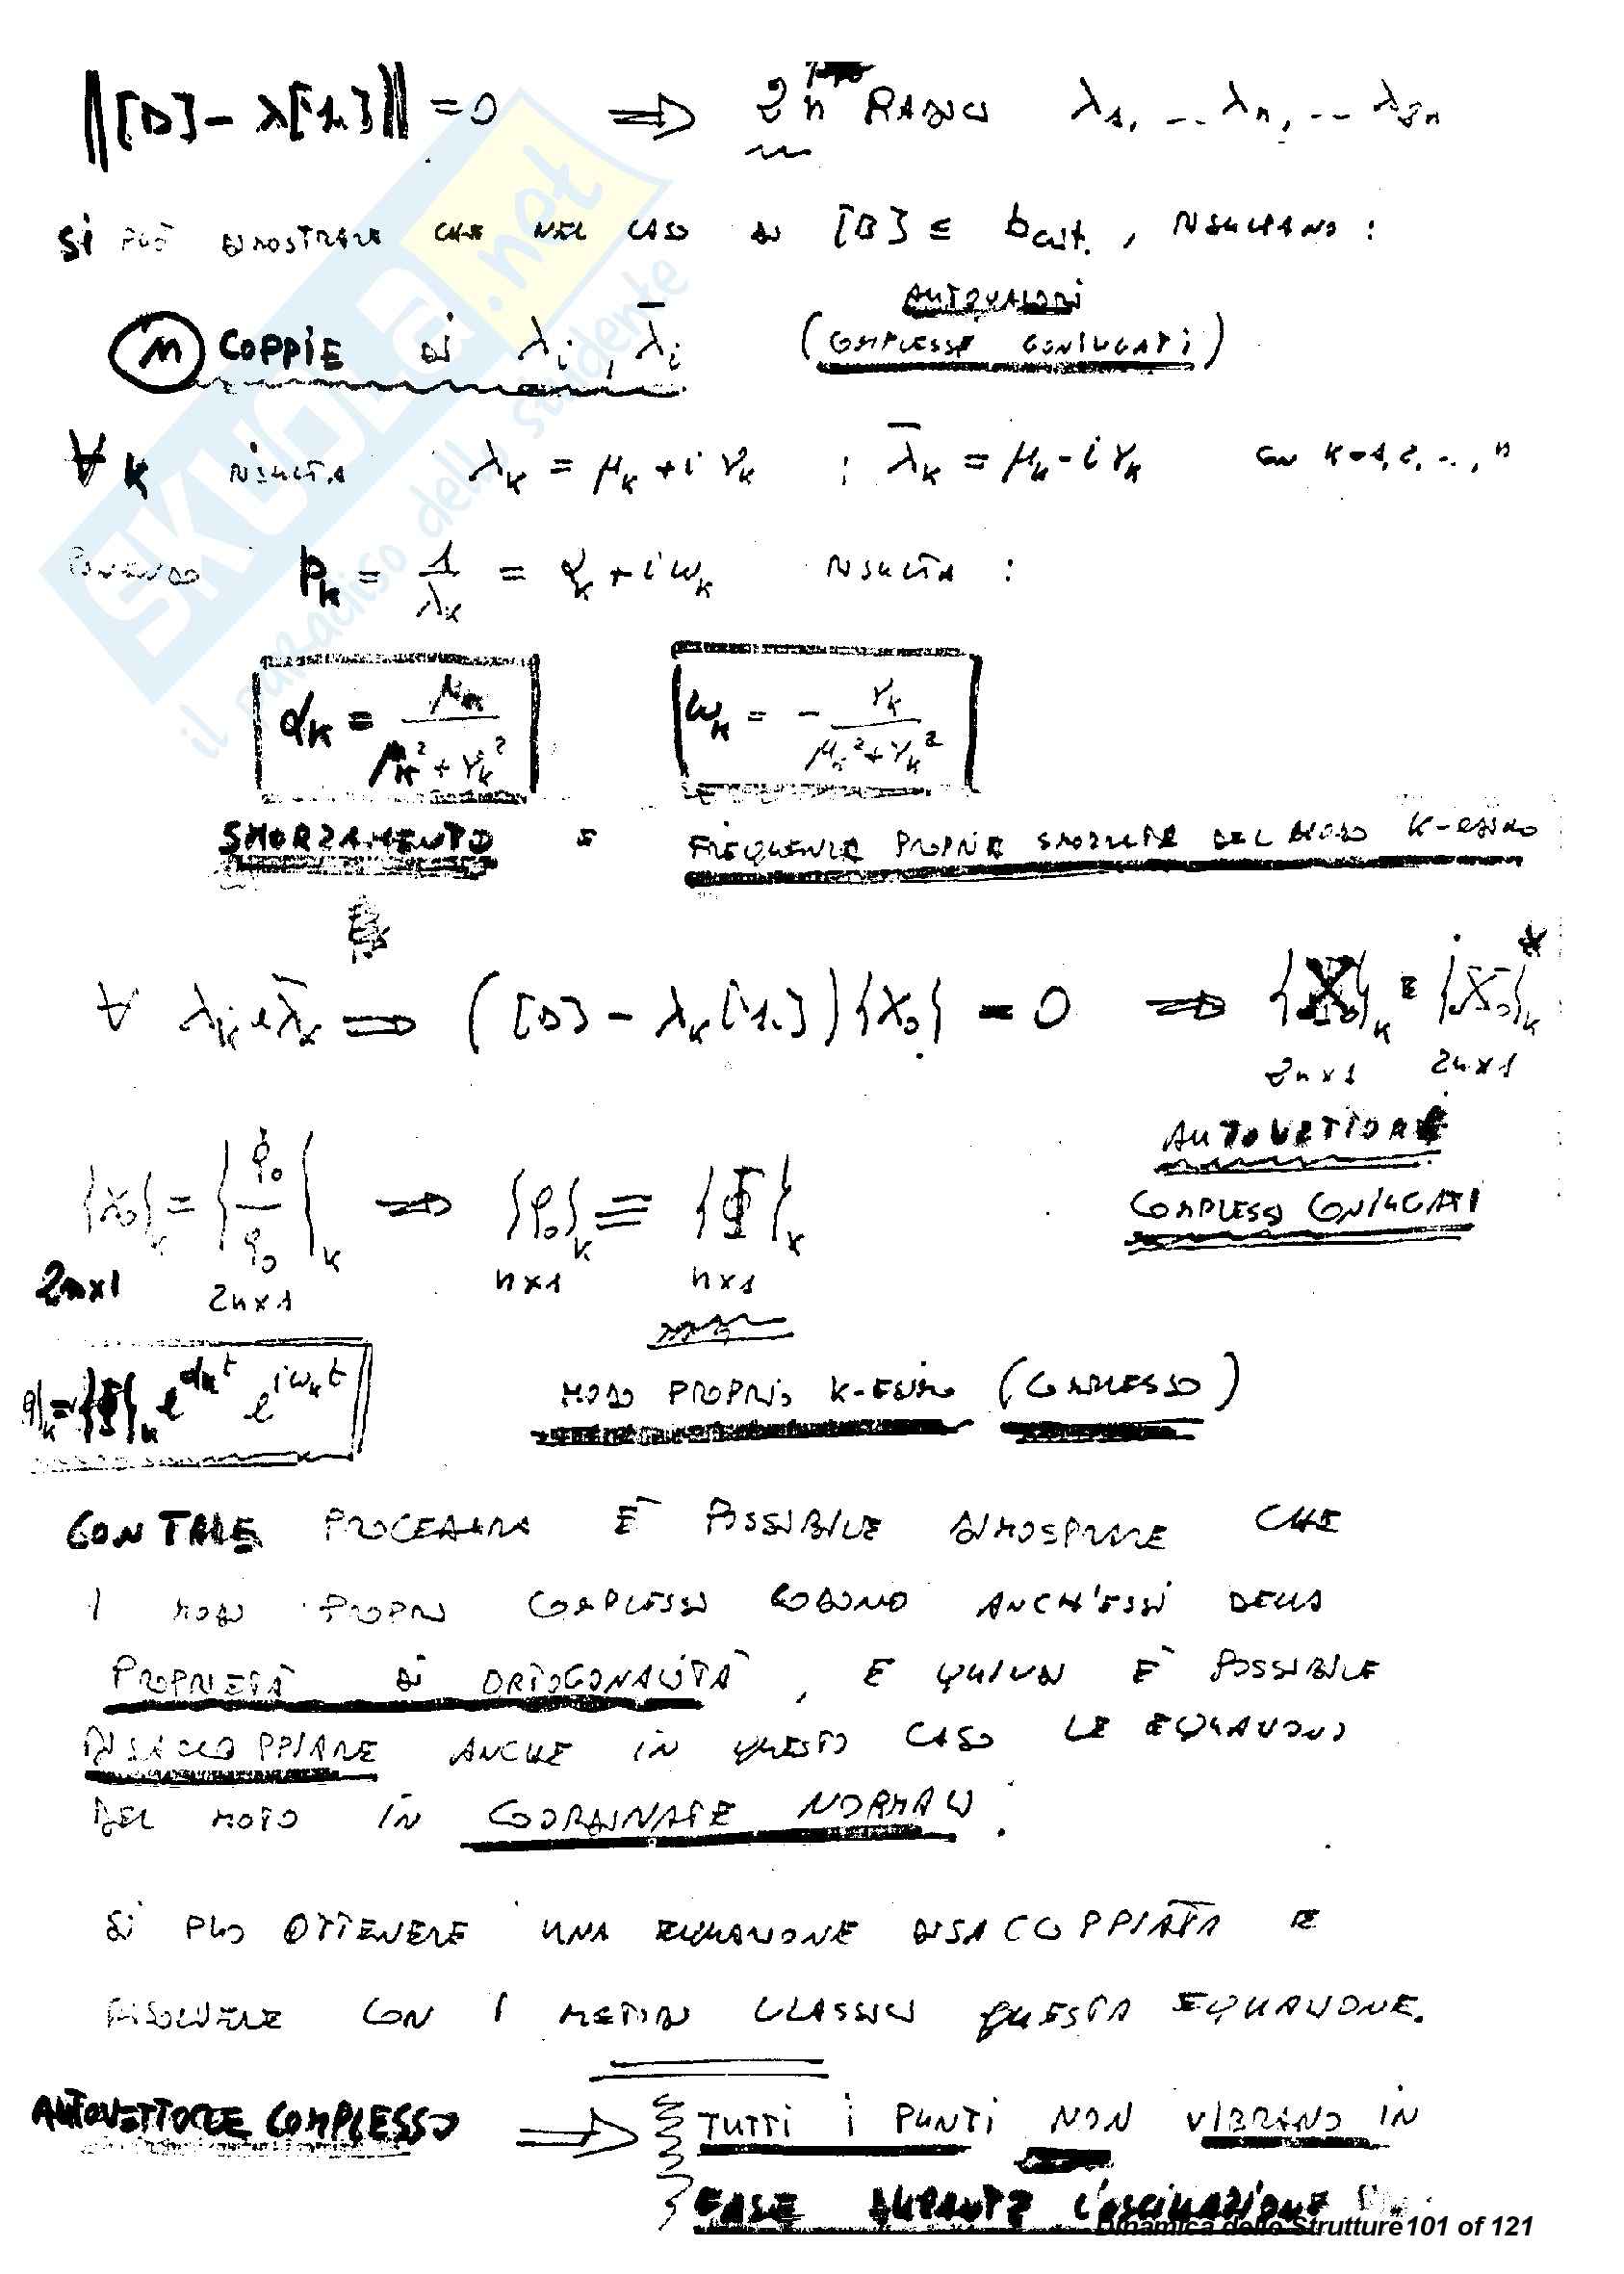 ‖[D] - λ[1.]‖ = 0 ⟹ 2n RADICI λ₁, ... λₙ, ... λ₂ₙ
SI PUÒ DIMOSTRARE CHE NEL CASO DI [B] ≤ b_crit., RISULTANO:
AUTOVALORI
(n) COPPIE DI λᵢ, λ̄ᵢ (COMPLESSI CONIUGATI)
∀ K RISULTA λ_K = μ_K + i γ_K ; λ̄_K = μ_K - i γ_K CON K=1,2,..,n
PONENDO P_K = 1/λ_K = α_K + i ω_K RISULTA:
α_K = μ_K / (μ_K² + γ_K²) ω_K = - γ_K / (μ_K² + γ_K²)
SMORZAMENTO E FREQUENZE PROPRIE SMORZATE DEL MODO K-ESIMO
∀ λ_K e λ̄_K ⟹ ([D] - λ_K [1.]) {X₀} = 0 ⟹ {X₀}_K E {X₀}*_K
2n×1 2n×1
AUTOVETTORI
COMPLESSI CONIUGATI
{X₀}_K = {q̇₀ / q₀}_K ⟹ {q₀}_K ≡ {Φ}_K
2n×1 2n×1 n×1 n×1
q|_K = {Φ}_K e^{α_K t} e^{i ω_K t} MODO PROPRIO K-ESIMO (COMPLESSO)
CON TALE PROCEDURA È POSSIBILE DIMOSTRARE CHE
I MODI PROPRI COMPLESSI GODONO ANCH'ESSI DELLA
PROPRIETÀ DI ORTOGONALITÀ, E QUINDI È POSSIBILE
DISACCOPPIARE ANCHE IN QUESTO CASO LE EQUAZIONI
DEL MOTO IN COORDINATE NORMALI.
SI PUO OTTENERE UNA EQUAZIONE DISACCOPPIATA E
RISOLVERE CON I METODI CLASSICI QUESTA EQUAZIONE.
AUTOVETTORE COMPLESSO ⟹ TUTTI I PUNTI NON VIBRANO IN
FASE DURANTE L'OSCILLAZIONE
Dinamica dello Strutture101 of 121
SKUOLA.net
il paradiso dello studente